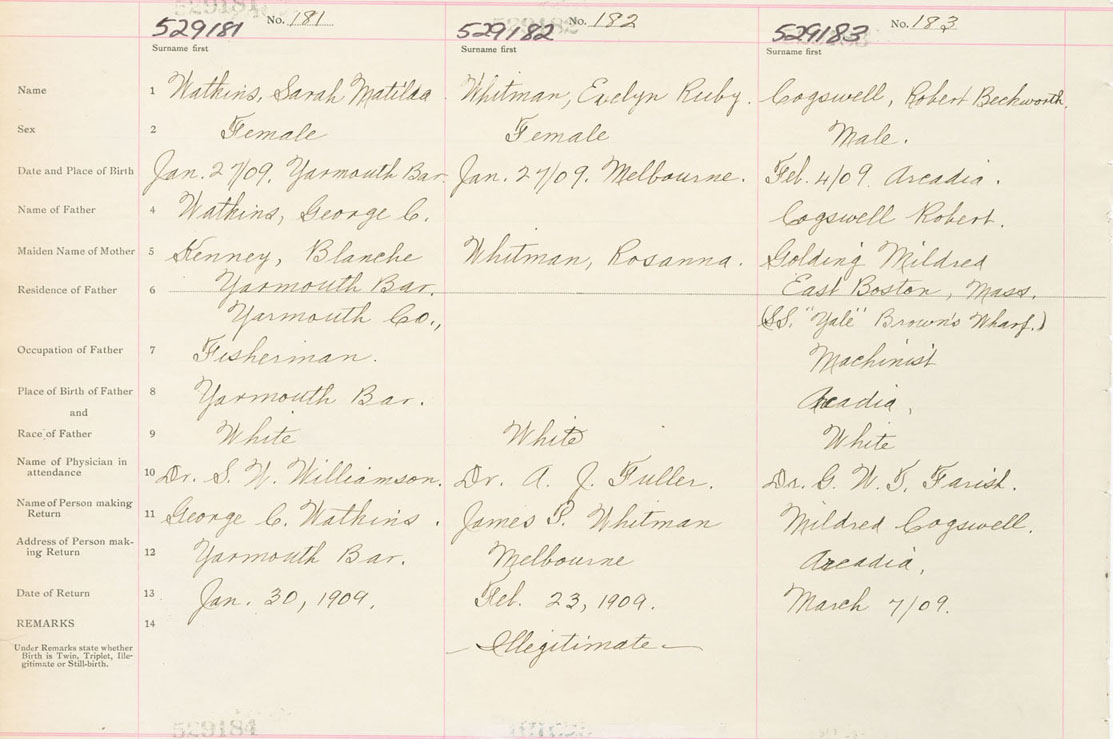 No. 181 No. 182 No. 183
529181 529182 529183
Surname first Surname first Surname first
Name 1 Watkins, Sarah Matilda Whitman, Evelyn Ruby. Cogswell, Robert Beckworth.
Sex 2 Female Female Male.
Date and Place of Birth Jan. 27/09. Yarmouth Bar. Jan. 27/09. Melbourne. Feb. 4/09. Arcadia.
Name of Father 4 Watkins, George C. Cogswell Robert.
Maiden Name of Mother 5 Kenney, Blanche Whitman, Rosanna. Golding Mildred
Residence of Father 6 Yarmouth Bar. East Boston, Mass.
Yarmouth Co., (S.S. "Yale" Brown's Wharf.)
Occupation of Father 7 Fisherman. Machinist
Place of Birth of Father 8 Yarmouth Bar. Arcadia,
and
Race of Father 9 White White White
Name of Physician in
attendance 10 Dr. S. W. Williamson. Dr. A. J. Fuller. Dr. G. W. T. Farish.
Name of Person making
Return 11 George C. Watkins. James P. Whitman Mildred Cogswell.
Address of Person mak-
ing Return 12 Yarmouth Bar. Melbourne Arcadia,
Date of Return 13 Jan. 30, 1909. Feb. 23, 1909. March 7/09.
REMARKS 14
Under Remarks state whether
Birth is Twin, Triplet, Ille-
gitimate or Still-birth.
— Illegitimate —
529184